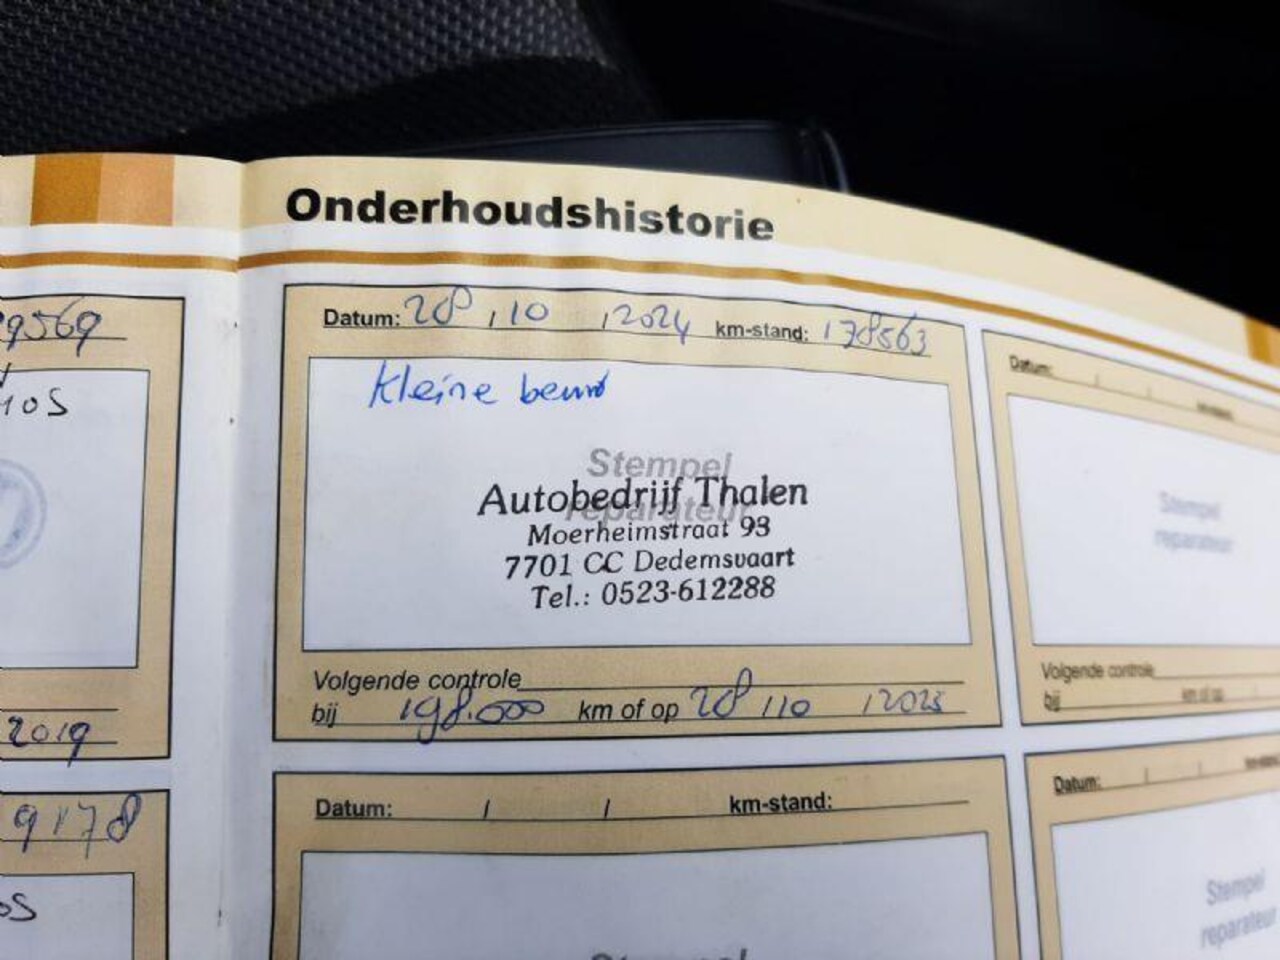 Onderhoudshistorie
9569
10S
2019
9178
Datum: 28 / 10 / 2024 km-stand: 178563
Kleine beurt
Stempel
reparateur
Autobedrijf Thalen
Moerheimstraat 93
7701 CC Dedemsvaart
Tel.: 0523-612288
Volgende controle
bij 198.000 km of op 28 / 10 / 2025
Datum: / / km-stand:
Stempel
Datum: / /
Stempel
reparateur
Volgende controle
bij km of op
Datum: / /
Stempel
reparateur